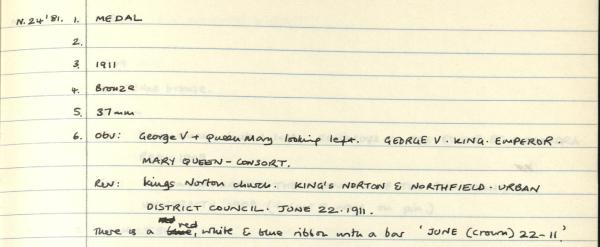 N.24'81. 1. MEDAL
2.
3. 1911
4. Bronze
5. 37mm
6. Obv: George V + Queen Mary looking left. GEORGE V · KING · EMPEROR.
MARY QUEEN-CONSORT.
Rev: Kings Norton church. KING'S NORTON & NORTHFIELD · URBAN
DISTRICT COUNCIL. JUNE 22. 1911.
There is a red, white & blue ribbon with a bar 'JUNE (crown) 22-11'